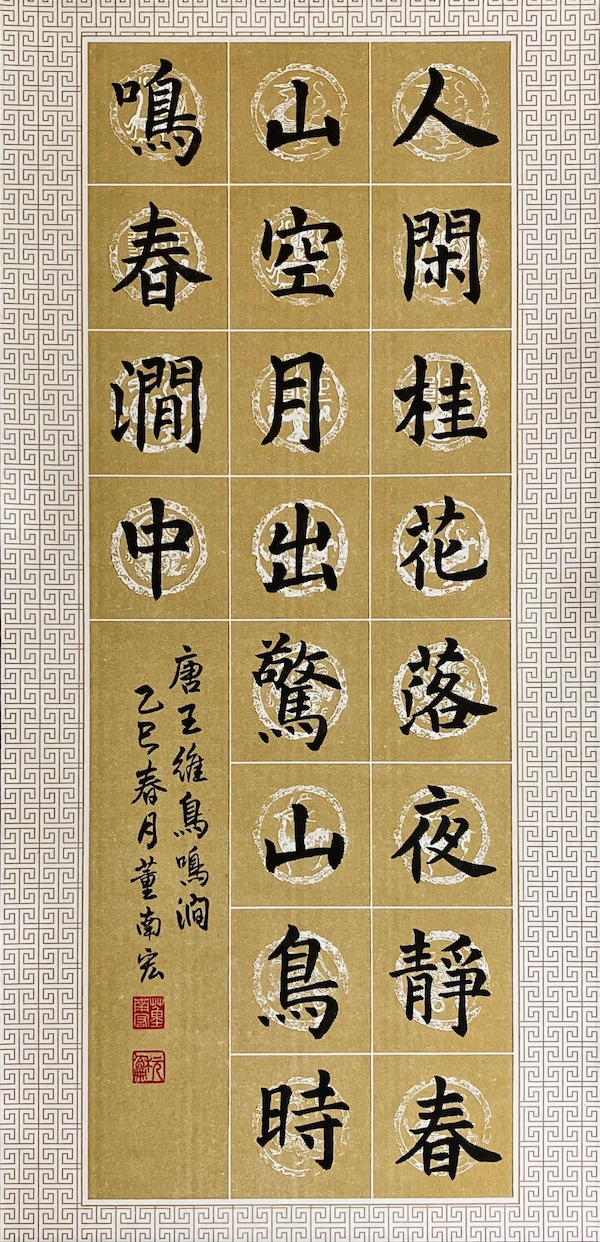 人閑桂花落夜靜春
山空月出驚山鳥時
鳴春澗中
唐王維鳥鳴澗
乙巳春月董南宏
董南宏